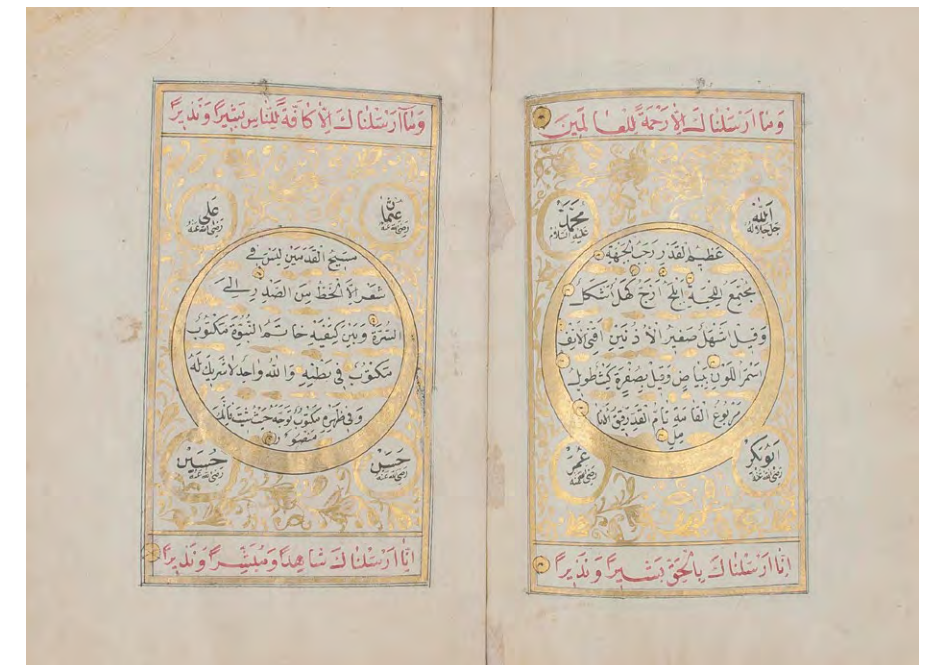 وَمَا اَرْسَلْنَاكَ اِلَّا رَحْمَةً لِلْعَالَمِينَ
اَللّٰه جَلَّ جَلَالُهُ
مُحَمَّد عَلَيْهِ السَّلَام
عَظِيمُ الْقَدْرِ رَحْبُ الْجَبْهَةِ
مُجْتَمِعُ اللِّحْيَةِ اَبْلَجُ اَزَجُّ كَحَلُ اَشْكَلُ
وَقِيلَ اَشْهَلُ صَغِيرُ الْاُذُنَيْنِ اَقْنَى الْاَنْفِ
اَسْمَرُ اللَّوْنِ بِبَيَاضٍ وَقِيلَ بِصُفْرَةٍ كَثٌّ طَوِيلُ
مَرْبُوعُ الْقَامَةِ تَامُّ الْقَدِّ رَقِيقُ الْاَنَا
مِلِ
اَبُو بَكْر رَضِيَ اللهُ عَنْهُ
عُمَر رَضِيَ اللهُ عَنْهُ
اِنَّا اَرْسَلْنَاكَ بِالْحَقِّ بَشِيرًا وَنَذِيرًا
وَمَآ اَرْسَلْنَاكَ اِلَّا كَآفَّةً لِلنَّاسِ بَشِيرًا وَنَذِيرًا
عُثْمَان رَضِيَ اللهُ عَنْهُ
عَلِي رَضِيَ اللهُ عَنْهُ
مَسِيحُ الْقَدَمَيْنِ لَيْسَ فِي
شَعْرٍ اِلَّا الْخَطُّ مِنَ الصَّدْرِ اِلَى
السُّرَّةِ وَبَيْنَ كَتِفَيْهِ خَاتَمُ النُّبُوَّةِ مَكْتُوبٌ
مَكْتُوبٌ فِي بَطْنِهِ وَاللهُ وَاحِدٌ لَا شَرِيكَ لَهُ
وَفِي ظَهْرِهِ مَكْتُوبٌ تَوَجَّهْ حَيْثُ شِئْتَ فَاِنَّكَ
مَنْصُورٌ
حَسَن رَضِيَ اللهُ عَنْهُ
حُسَيْن رَضِيَ اللهُ عَنْهُ
اِنَّا اَرْسَلْنَاكَ شَاهِدًا وَمُبَشِّرًا وَنَذِيرًا